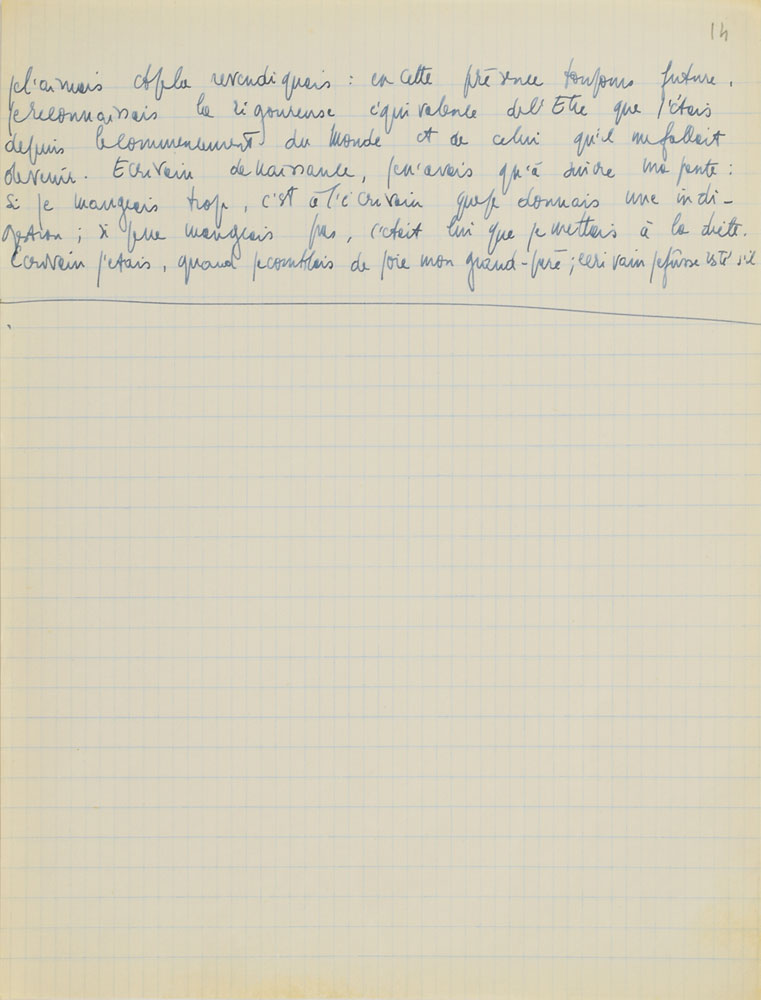 14
je l'aimais et je la revendiquais : en cette présence toujours future,
je reconnaissais la rigoureuse équivalence de l'Etre que j'étais
depuis le commencement du Monde et de celui qu'il me fallait
devenir. Ecrivain de naissance, je n'avais qu'à suivre ma pente :
si je mangeais trop, c'est à l'écrivain que je donnais une indi-
gestion ; si je ne mangeais pas, c'était lui que je mettais à la diète.
Ecrivain j'étais, quand je comblais de joie mon grand-père ; écrivain je fusse resté s'il